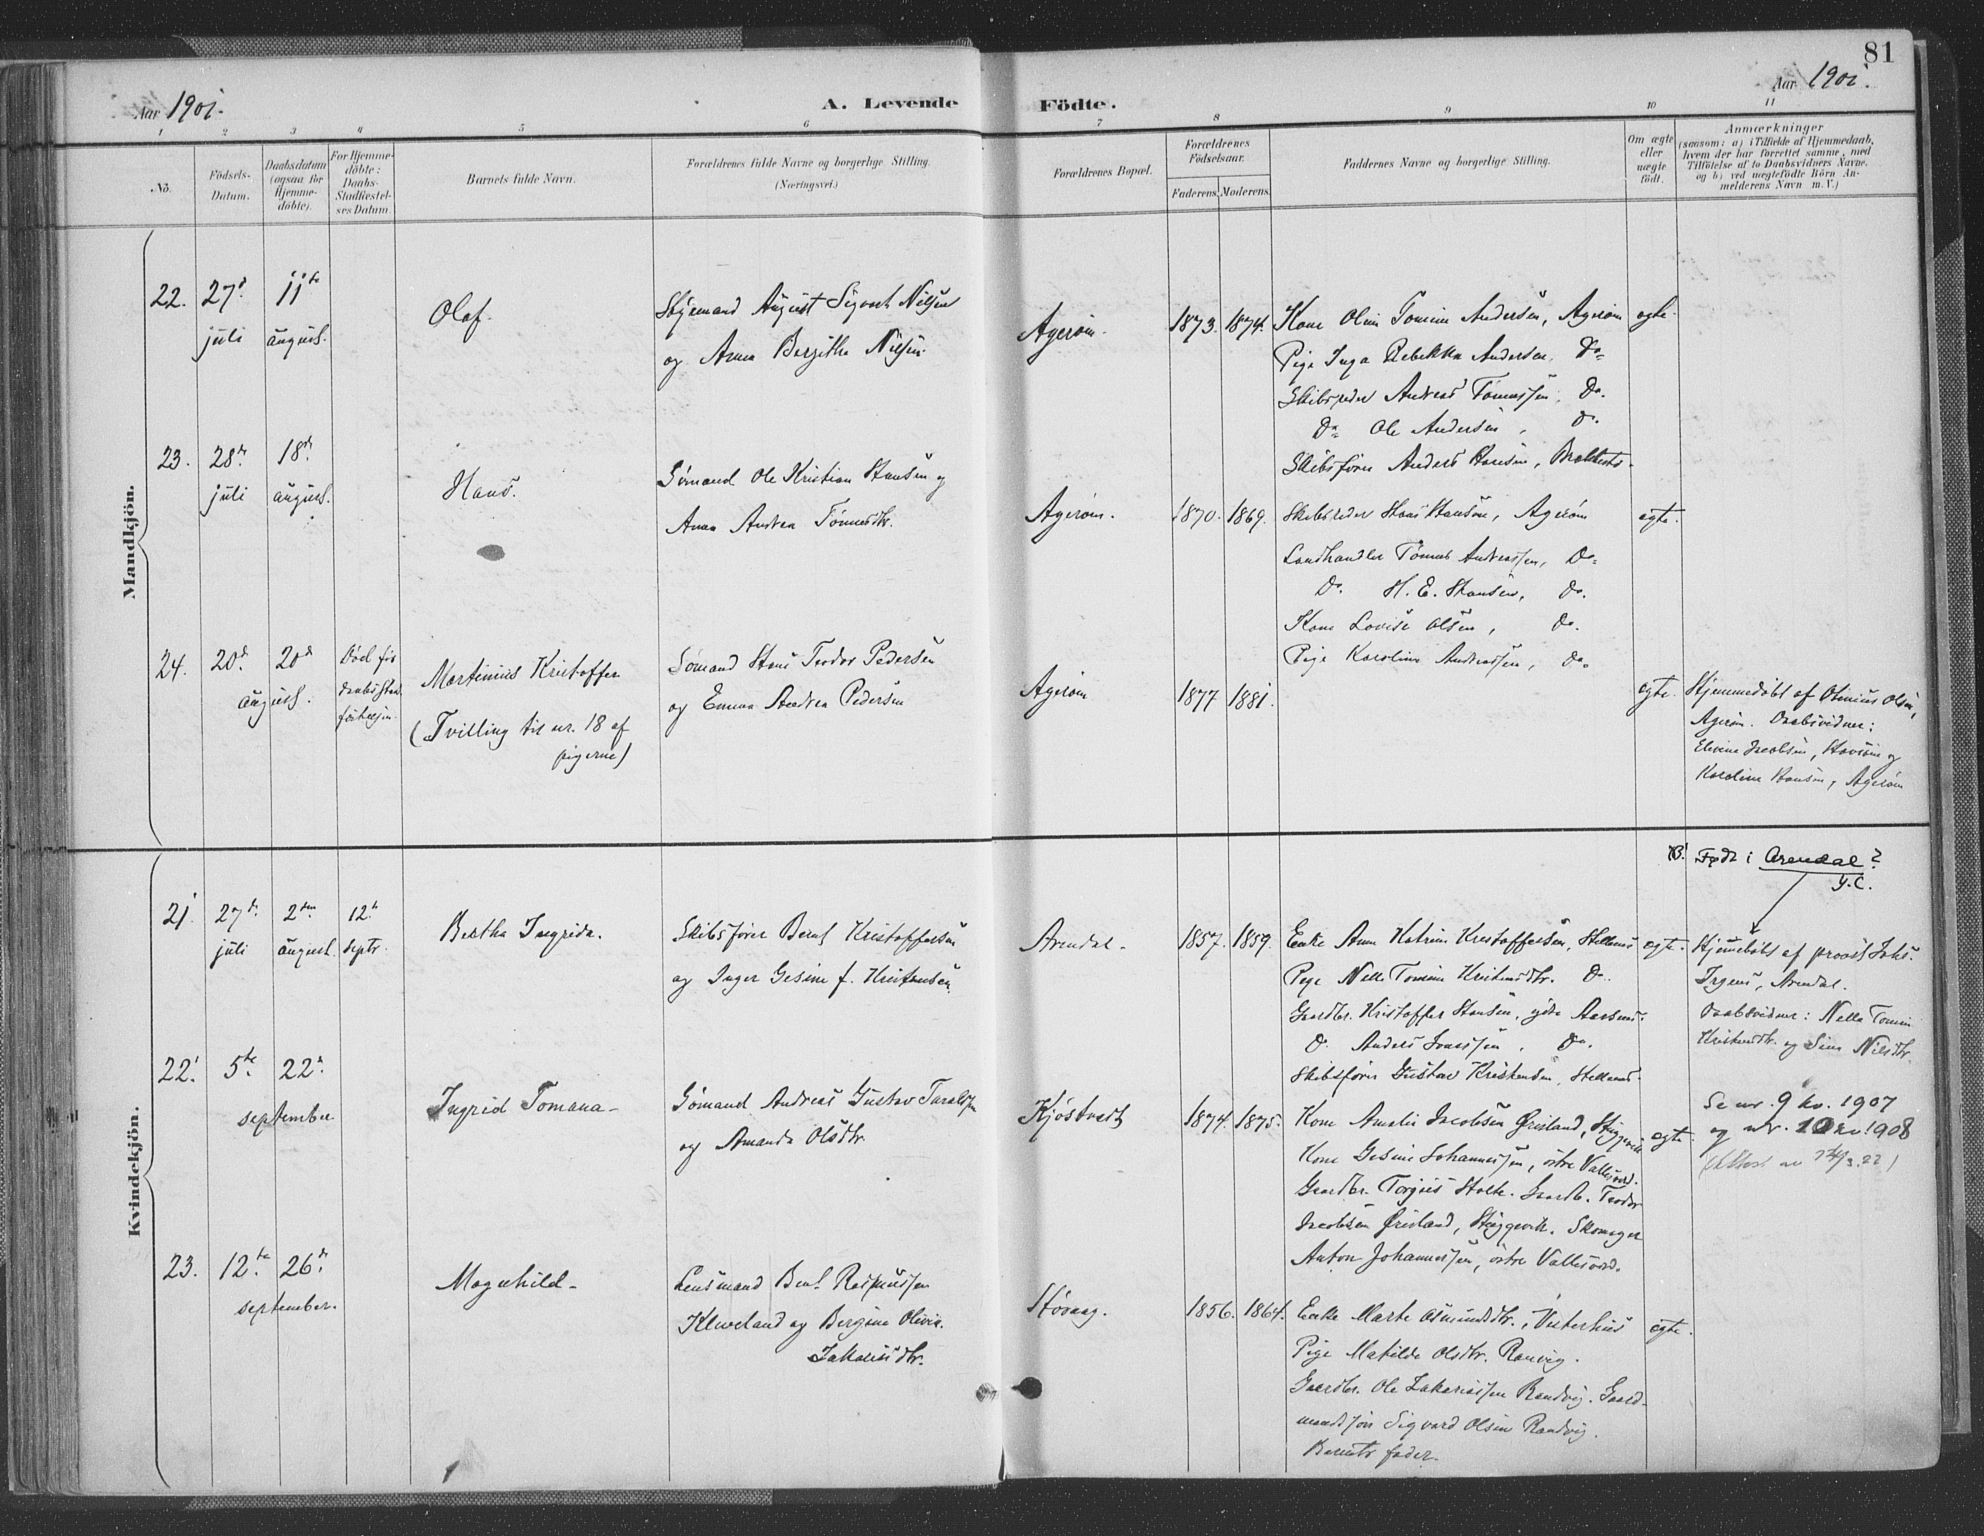 81
Aar 1901.
A. Levende Födte.
Aar 1901.
1 2 3 4 5 6 7 8 9 10 11
No.
Födsels-Datum.
Daabsdatum (ogsaa for Hjemme-döbte).
For Hjemme-döbte: Daabs-Stadfæstel-ses Datum.
Barnets fulde Navn.
Forældrenes fulde Navne og borgerlige Stilling.
(Næringsvei.)
Forældrenes Bopæl.
Forældrenes Födselsaar.
Faderens. Moderens.
Faddernes Navne og borgerlige Stilling.
Om ægte eller uægte født.
Anmærkninger
(saasom: a) i Tilfælde af Hjemmedaab,
hvem der har forrettet samme, med
Tilföielse af to Daabsvidners Navne,
og b) ved uegtefödte Börn An-
melderens Navn m. V.)
Mandkjön.
22. 27d juli 11te august.
Olaf.
Styrmand August Sigvart Nilsen
og Anna Bergithe Nilsen.
Agerøen.
1873. 1874.
Kone Oline Tomine Andersen, Agerøen
Pige Inga Rebekka Andersen, Do
Skibsreder Andreas Tønnessen, Do.
Do Ole Andersen, Do.
Skibsfører Anders Hansen,
egte.
23. 28de juli 18de august.
Hans.
Sømand Ole Kristian Hansen og
Anna Andrea Tønnesdtr.
Agerøen.
1870. 1869.
Skibsreder Hans Hansen, Agerøen
Landhandler Tønnes Andreassen, Do
Do. H. E. Hansen, Do.
Kone Lovise Olsen, Do.
Pige Karoline Andreassen, Do.
egte.
24. 20d 20d august.
Død før
daabs stad-
fæstelsen.
Martinius Kristoffer
(Tvilling til nr. 18 af
pigerne)
Sømand Hans Teodor Pedersen
og Emma Andrea Pedersen
Agerøen
1877 1881.
egte.
Hjemmedøbt af Otinius Olsen,
Agerøen. Daabsvidner:
Elevine Jacobsen, og
Karoline Hansen, Agerøen
Kvindekjön.
NB! Født i Arendal?
Y.C.
21. 27de juli 2den august. 12te septr.
Bertha Ingrida.
Skibsfører Bent Kristoffersen
og Inger Gesine f. Kristensen.
Arendal.
1857. 1859.
Enke Ane Katrine Kristoffersen, Hellenes
Pige Nelle Tomine Kristensdtr. Do.
Gaardbr. Kristoffer Hansen, ydre Aarsnes.
Do. Anders Jonassen, Do.
Skibsfører Gustav Kristensen, Hellenes.
egte.
Hjemdøbt af provst Johs.
Irgens, Arendal.
Daabsvidner: Nella Tomine
Kristensdtr. og Sina Nilsdtr.
22. 5te 22de september.
Ingrid Tomana
Sømand Andreas Gustav Taraldsen
og Amanda Olsdtr.
Kjøstvedt
1874. 1875.
Kone Amalie Jacobsen Grisland, Skiggevik
Kone Gesine Johannessen, østre Vallesverd.
Gaardbr. Torgius Holte. Gaardbr. Teodor
Jacobsen Grisland, Skiggevik. Skomager
Anton Johannessen, østre Vallesverd.
egte
Se nr. 9 kv. 1907
og nr. 10 kv. 1908
23. 12te 26de september.
Magnhild
Lensmand Bent Rasmussen
Kleveland og Bergine Olivie
Sakariasdtr.
Høvaag.
1856. 1864.
Enke Marte Osmundsdtr., Vesterhus
Pige Matilde Olsdtr. Ranvig.
Gaardbr. Ole Zakariassen Randvig. Gaard-
mandssøn Sigvard Olsen Randvig.
Barnets fader.
egte.